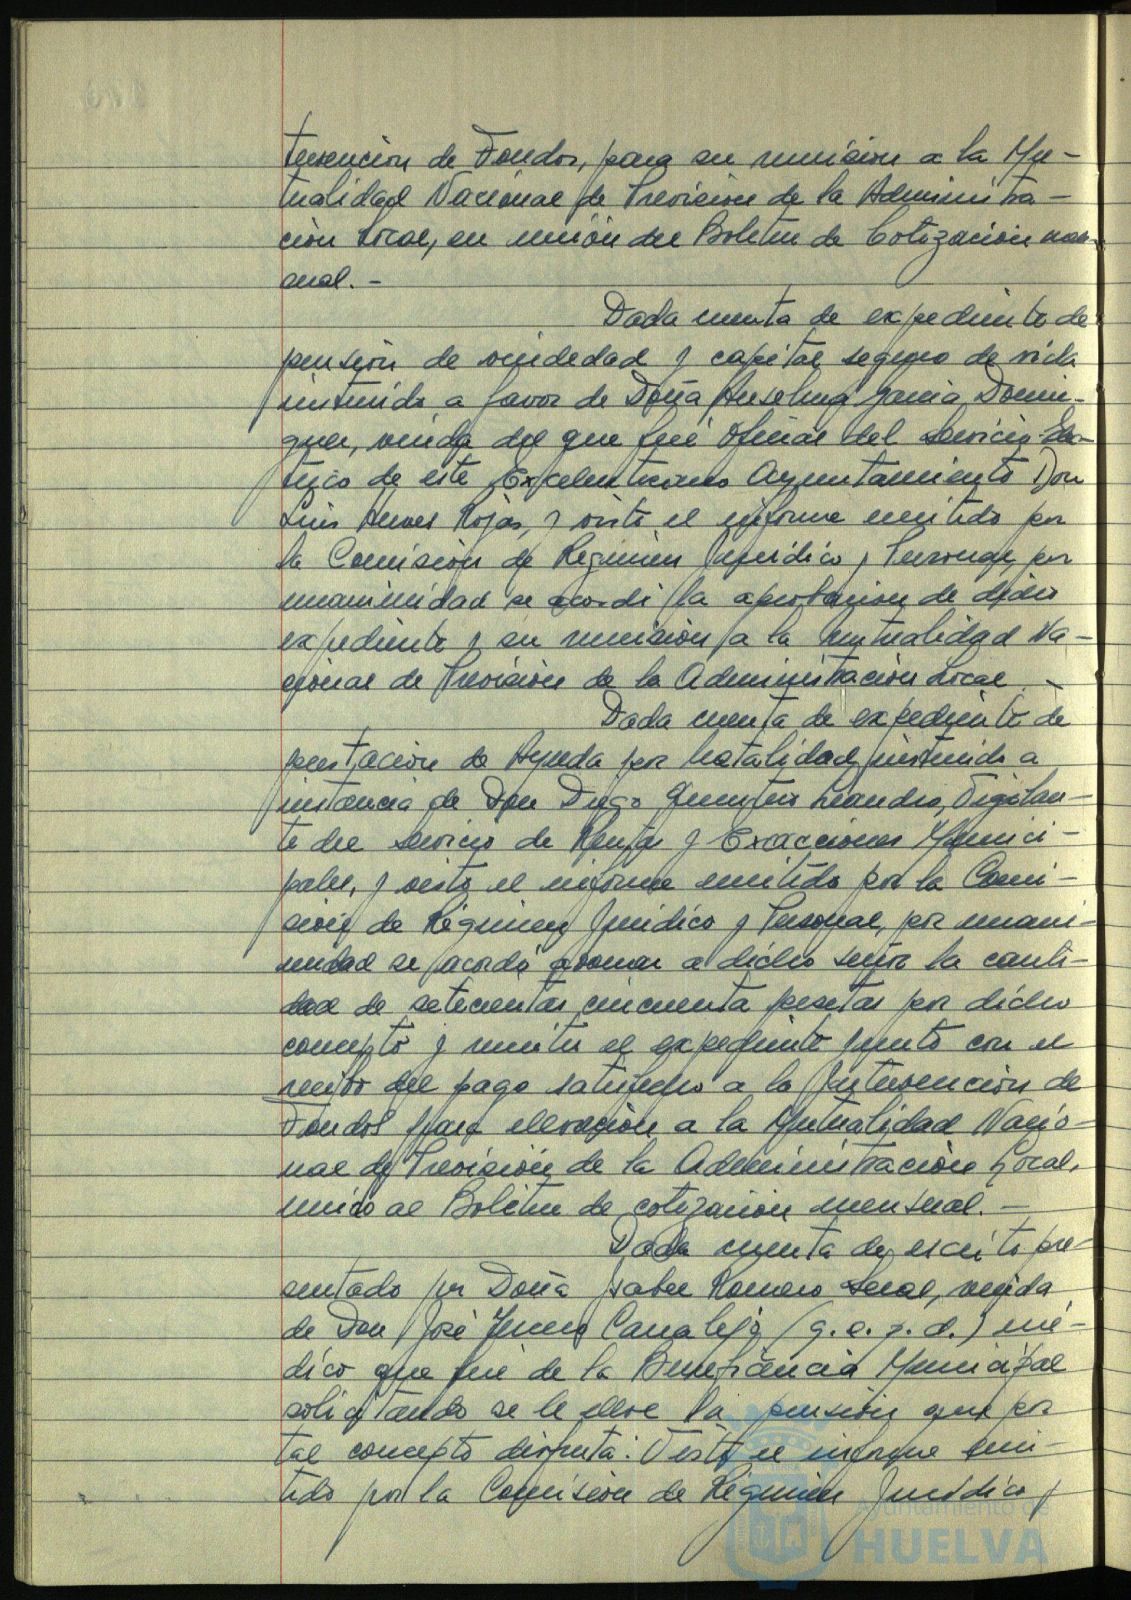 tervención de Fondos, para su remisión a la Mu-
tualidad Nacional de Previsión de la Administra-
ción Local, en unión del Boletín de Cotización men-
sual.-
Dada cuenta de expediente de
pensión de viudedad y capital seguro de vida
instruido a favor de Doña Anselma Garcia Domin-
guez, viuda del que fué Oficial del Servicio
de este Excelentisimo Ayuntamiento Don
Luis Rojas, y visto el informe emitido por
la Comisión de Regimen Juridico y Personal, por
unanimidad se acordó la aprobacion de dicho
expediente y su remisión a la Mutualidad Na-
cional de Previsión de la Administración Local.-
Dada cuenta de expediente de
prestación de Ayuda por Natalidad, instruido a
instancia de Don Diego Quintero Leandro, Vigilan-
te del Servicio de Rentas y Exacciones Munici-
pales, y visto el informe emitido por la Comi-
sión de Régimen Juridico y Personal, por unani-
midad se acordó abonar a dicho señor la canti-
dad de setecientas cincuenta pesetas por dicho
concepto y remitir el expediente junto con el
recibo del pago satisfecho a la Intervención de
Fondos para elevación a la Mutualidad Nacio-
nal de Previsión de la Administración Local,
unido al Boletín de cotización mensual.-
Dada cuenta de escrito pre-
sentado por Doña Isabel Romero, viuda
de Don José Canalejo (q.e.p.d.) mé-
dico que fué de la Beneficencia Municipal
solicitando se le eleve la pensión que por
tal concepto disfruta. Visto el informe emi-
tido por la Comisión de Régimen Jurídico y
Ayuntamiento de
HUELVA